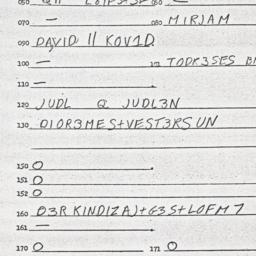 070 — 080 MIRJAM
090 DAVID // KOV1D
100 — TODR3SES
110 —
120 JUDL & JUDL3N
130 01OR3MES+VEST3RSUN
150 O
151 O
152 O
160 03R KINDIZAJ+G3S+LOFM7
161 —
170 O 171 O